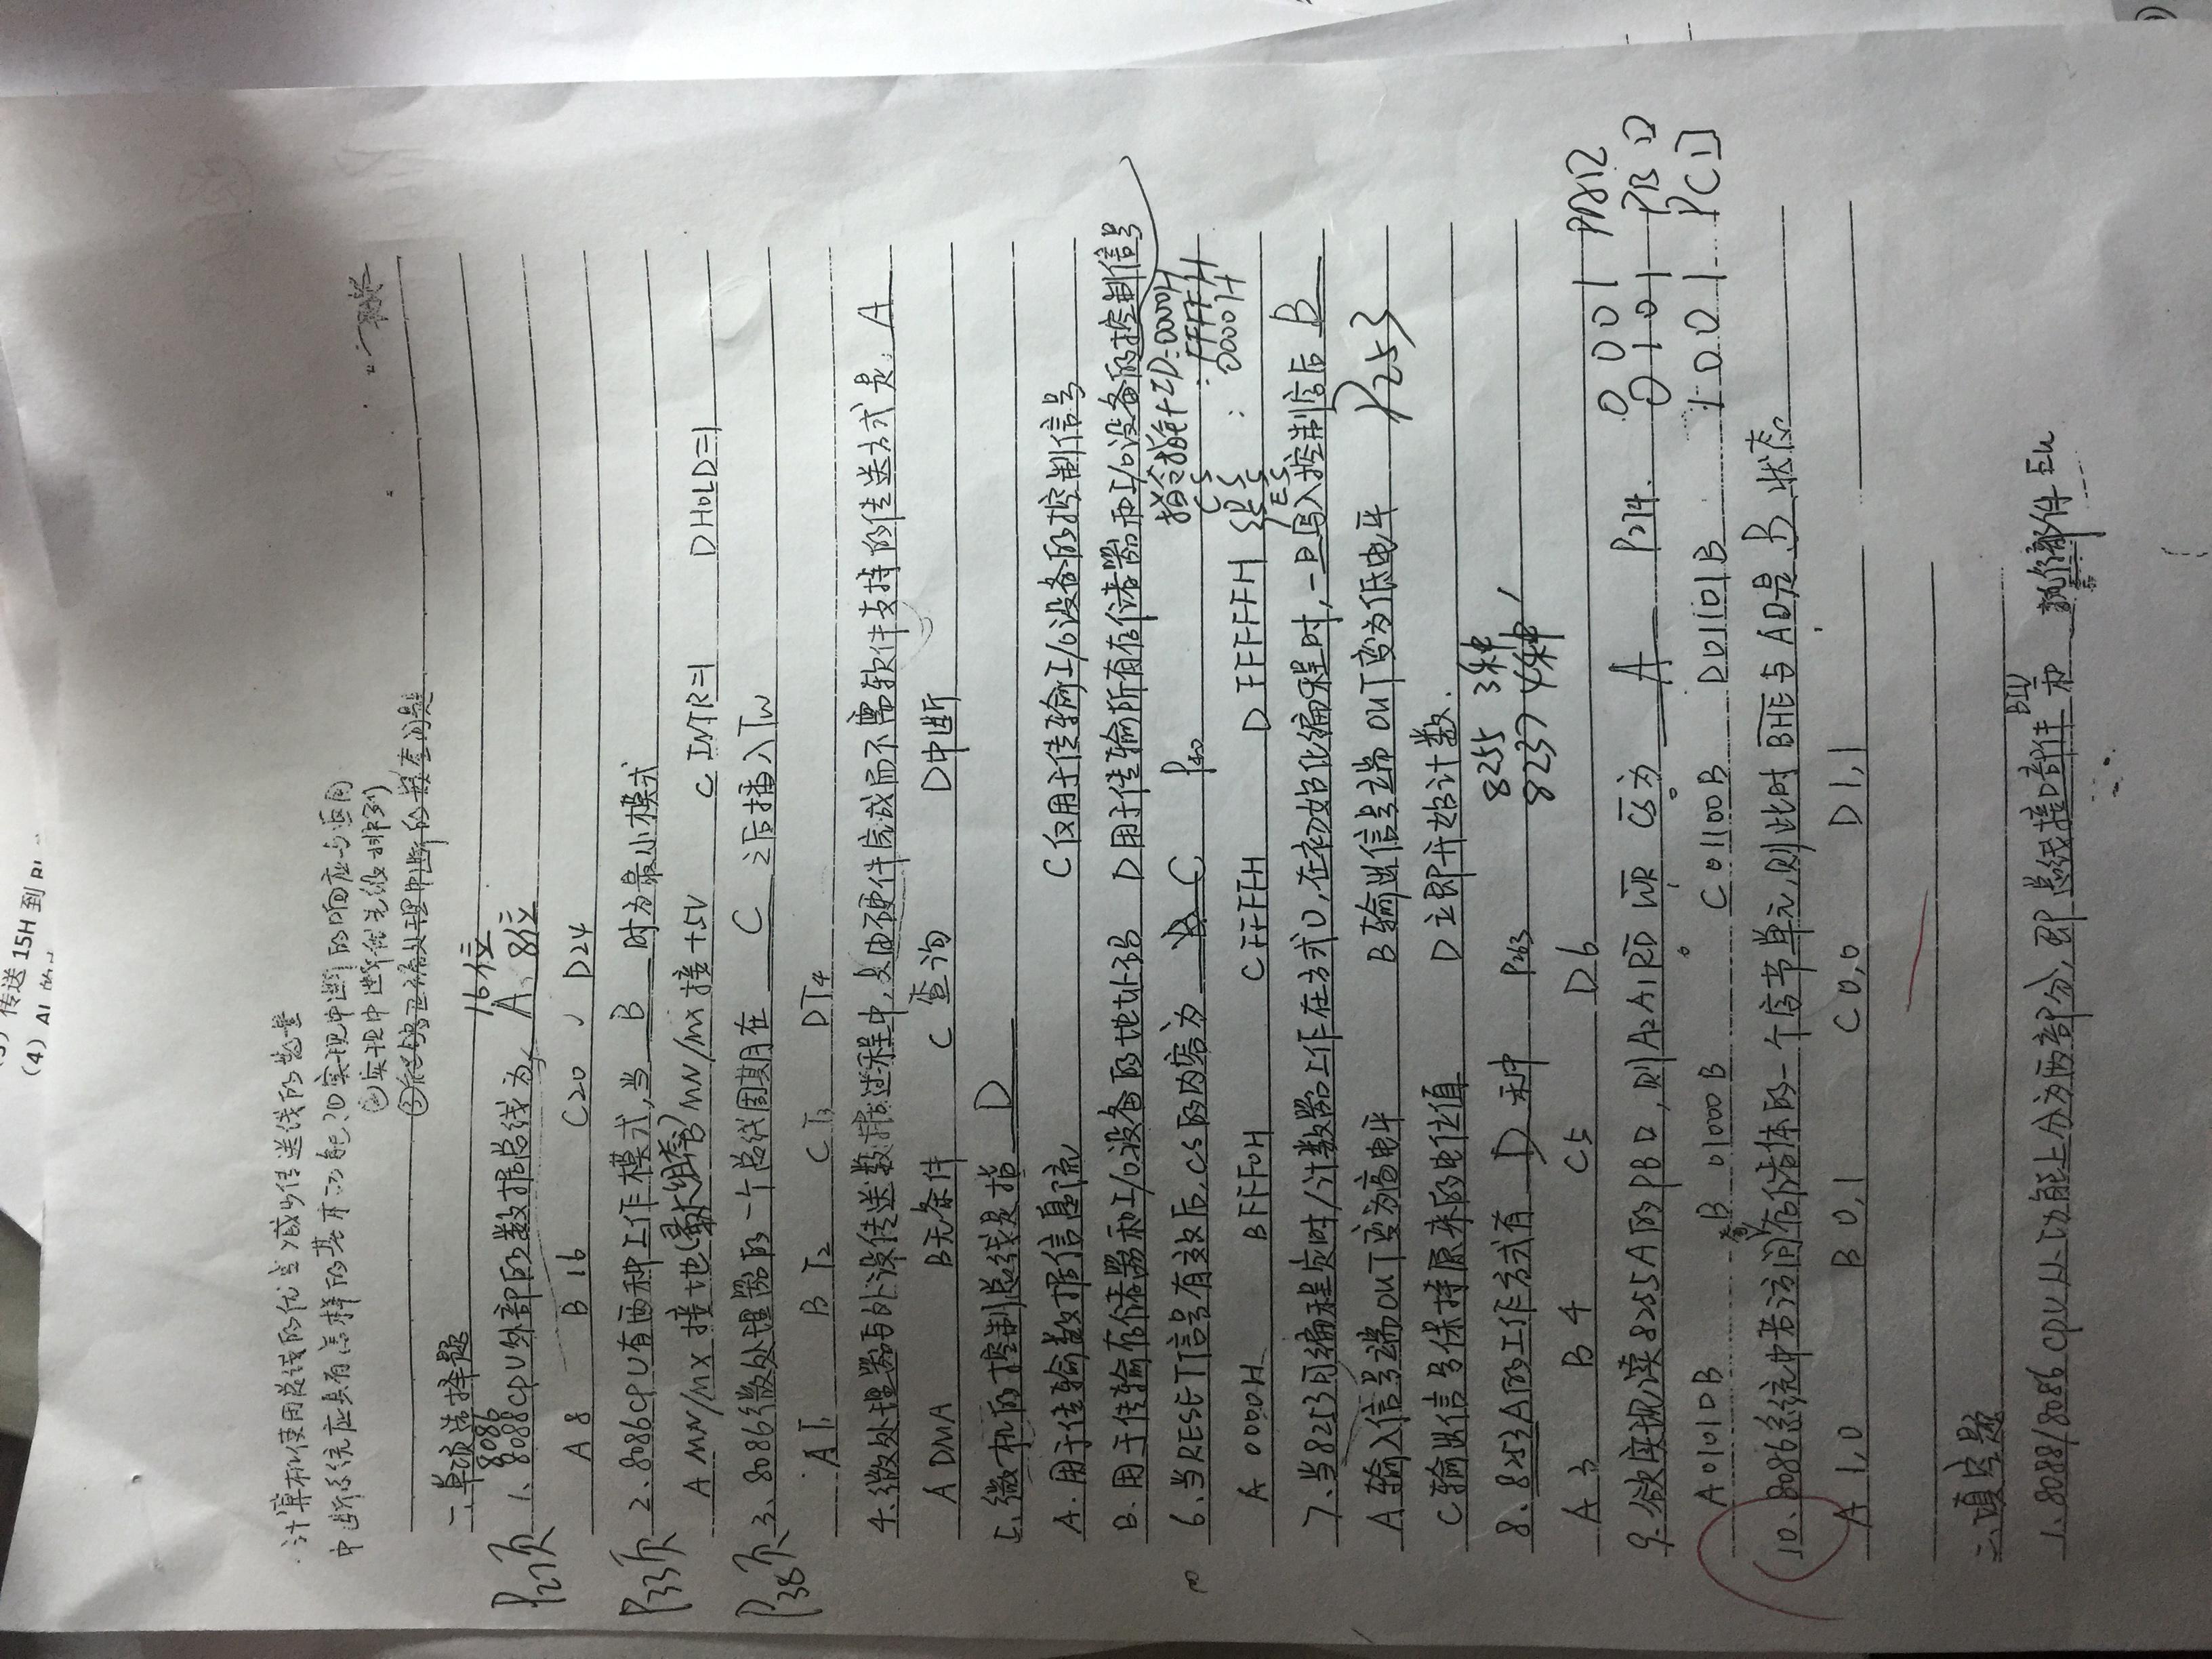 传送 15H 到 BL
(4) AL 的
计算机使用总线的优点 减少传送线的数量
中断系统应具有怎样的基本功能？①实现中断的响应与返回
②实现中断优先级排列
③能够正确处理中断的嵌套问题
一、单项选择题
8086 16位
P27页 1、8088CPU外部的数据总线为 A、8位
A 8 B 16 C 20 D 24
P33页 2、8086CPU有两种工作模式，当 B 时为最小模式
A MN/MX 接地(最大组态) B MN/MX 接 +5V C INTR=1 D HOLD=1
P38页 3、8086微处理器的一个总线周期在 C 之后插入Tw
A T1 B T2 C T3 D T4
4、微处理器与外设传送数据过程中，是由硬件完成而不需软件支持的传送方式是 A
A DMA B 无条件 C 查询 D 中断
5、微机的控制总线是指 D
A. 用于传输数据信息流 C 仅用于传输I/O设备的控制信号
B. 用于传输存储器和I/O设备的地址码 D 用于传输所有存储器和I/O设备的控制信号
6、当RESET信号有效后，CS的内容为 B C P40 指令指针 IP:0000H
CS : FFFFH
A 0000H B FFF0H C FFFFH D FFFFFH DS SS ES : 0000H
7、当8253可编程定时/计数器工作在方式0，在初始化编程时，一旦写入控制字后 B
A 输入信号端OUT变为高电平 B 输出信号端OUT变为低电平 P253
C 输出信号保持原来的电位值 D 立即开始计数.
8、8253A的工作方式有 D 种 P263 8255 3种
8237 4种
A 3 B 4 C 5 D 6
0 0 0 1 PA口
9、欲实现读8255A的PB口，则A2A1 RD WR CS为 A P274. 0 1 0 1 PB口
A 01010B B 01000B C 01100B D 01101B 1 0 0 1 PC口
奇
10、8086系统中若访问存储体的一个字节单元，则此时BHE与A0是 B 状态
A 1,0 B 0,1 C 0,0 D 1,1
二、填空题
1、8088/8086 CPU从功能上分为两部分，即 总线接口部件 BIU 和 执行部件 EU